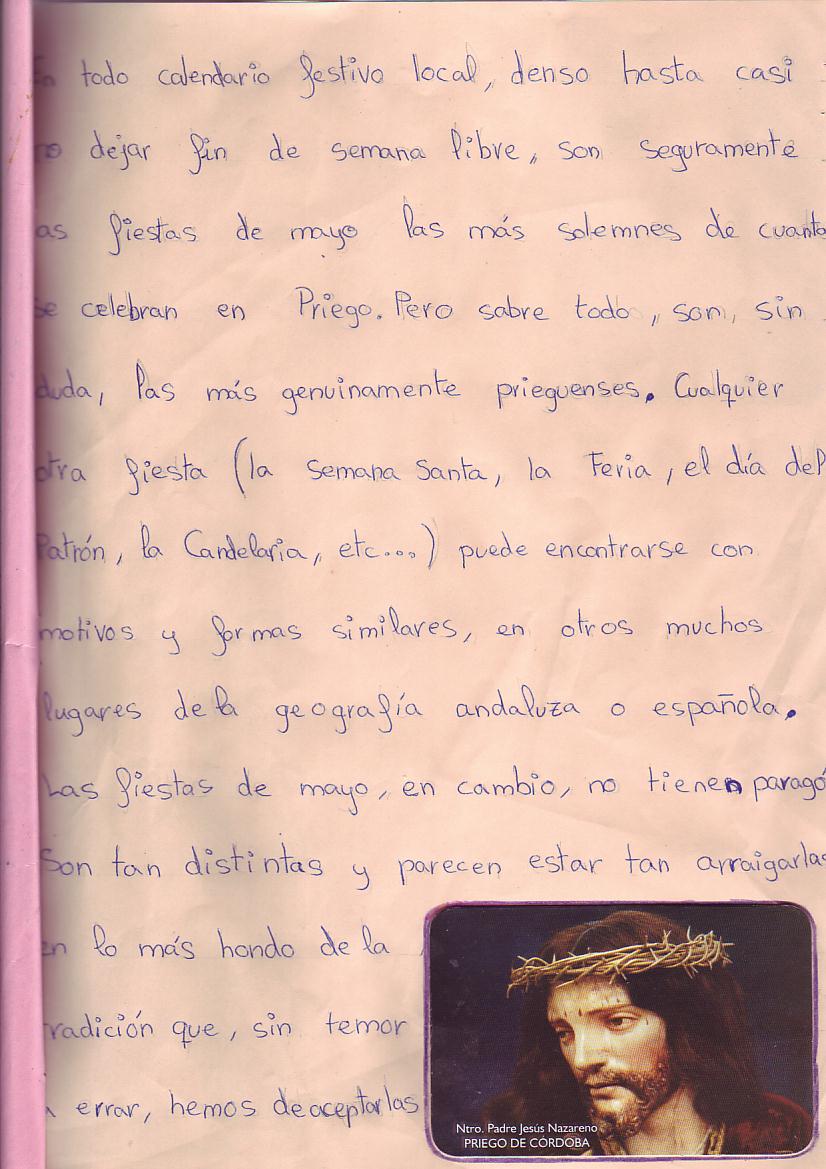 En todo calendario festivo local, denso hasta casi
no dejar fin de semana libre, son seguramente
as fiestas de mayo las más solemnes de cuanto
se celebran en Priego. Pero sabre todo, son, sin
duda, las más genuinamente prieguenses. Cualquier
otra fiesta (la Semana Santa, la Feria, el día del
Patrón, la Candelaria, etc...) puede encontrarse con
motivos y formas similares, en otros muchos
lugares de la geografía andaluza o española.
Las fiestas de mayo, en cambio, no tienen paragó
Son tan distintas y parecen estar tan arraigarlas
en lo más hondo de la
radición que, sin temor
a errar, hemos de aceptarlas
Ntro. Padre Jesús Nazareno
PRIEGO DE CÓRDOBA